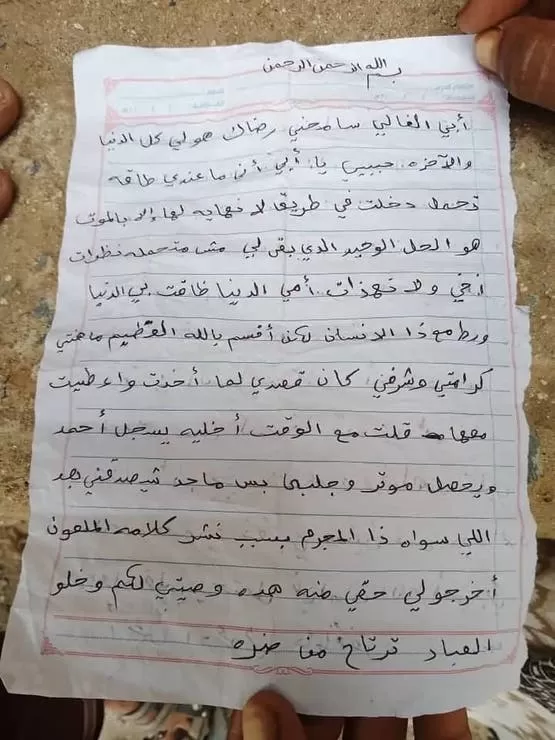 بسم الله الرحمن الرحمن
أبي الغالي سامحني رضاك هو لي كل الدنيا
والآخره حبيبي يا أبي أني ما عندي طاقه
تحمل دخلت في طريق لا نهايه لها إلا بالموت
هو الحل الوحيد الدي بقى لي مش متحمله نظرات
أخي ولا تهدات أمي الدنيا ظاقت بي الدنيا
ورطي مع ذا الانسان لكن أقسم بالله العظيم ما هنتي
كرامتي وشرفي كان قصدي لما أخدت واعطيت
معها قلت مع الوقت أخليه يسجل أحمد
ويحصل موتر وجلبها بس ماحد شيصدقني هد
اللي سواه ذا المجرم بسبب نشر كلامه الملعون
أخرجولي حقي منه هده وصيتي لكم وخلو
العباد ترتاح من ضره